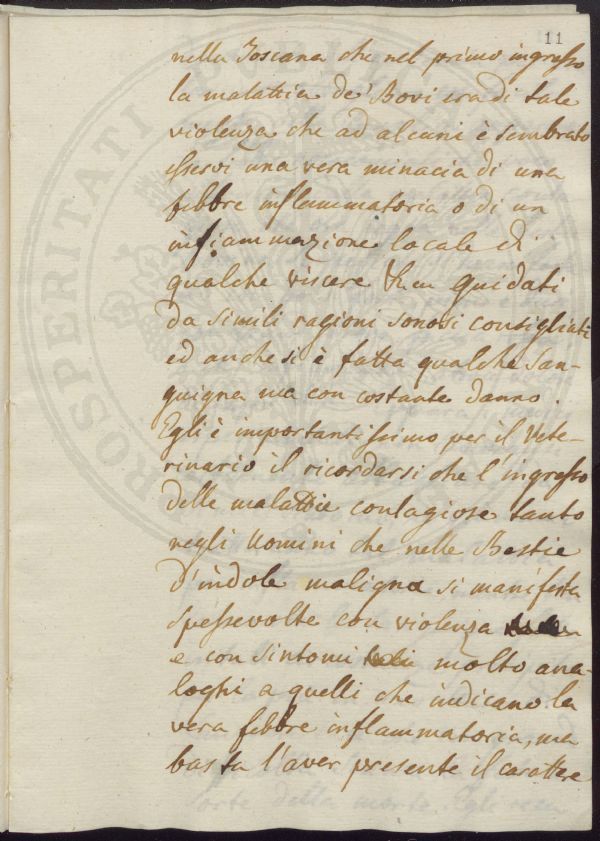 11
nella Toscana che nel primo ingresso
la malattia de' Bovi era di tale
violenza che ad alcuni è sembrato
esservi una vera minacia di una
febbre inflammatoria o di un
infiammazione locale di
qualche viscere guidati
da simili ragioni sonosi consigliati
ed anche si è fatta qualche San-
guigna ma con costante danno.
Egli è importantissimo per il Vete-
rinario il ricordarsi che l'ingresso
delle malattie contagiose tanto
negli Uomini che nelle Bestie
d'indole maligna si manifesta
spessevolte con violenza
e con sintomi molto ana-
loghi a quelli che indicano la
vera febbre inflammatoria, ma
basta l'aver presente il carattere
PROSPERITATI